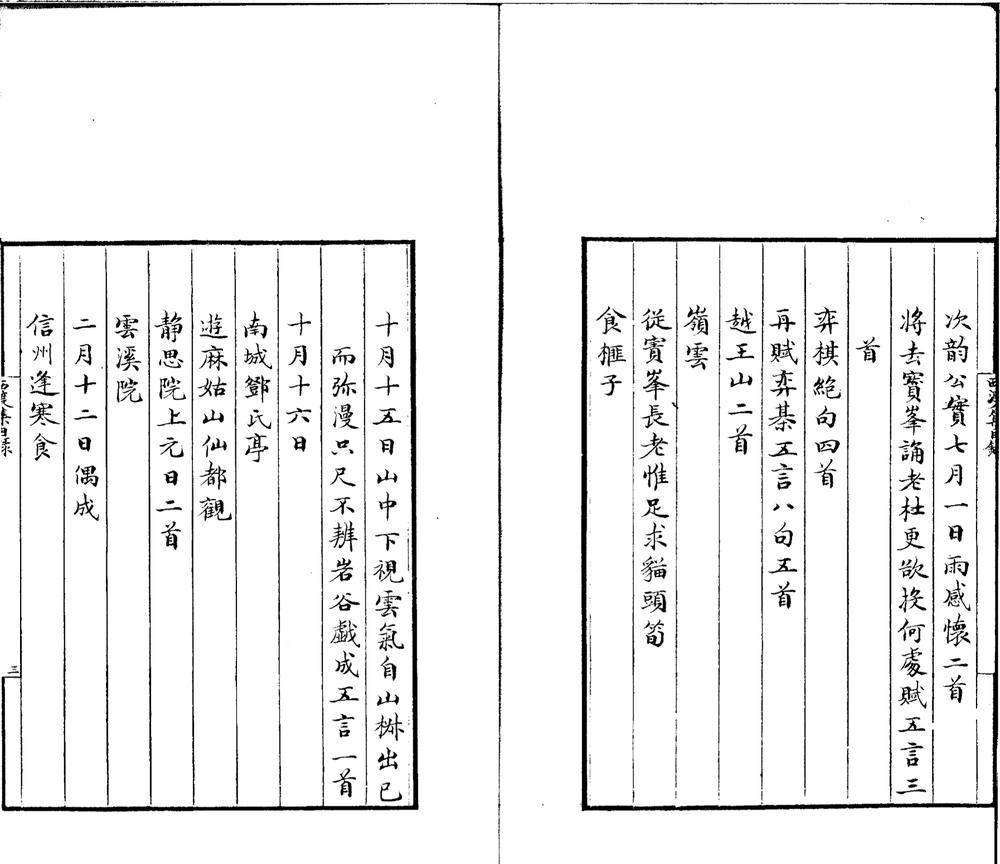 次韵公實七月一日雨感懷二首
將去寶峯誦老杜更欲投何處賦五言三
首
弈棋絶句四首
再賦弈棊五言八句五首
越王山二首
嶺雲
從寶峯長老惟足求貓頭筍
食榧子
十月十五日山中下視雲氣自山椒出已
而弥漫只尺不辨岩谷戯成五言一首
十月十六日
南城鄧氏亭
遊麻姑山仙都觀
靜思院上元日二首
雲溪院
二月十二日偶成
信州逢寒食
三